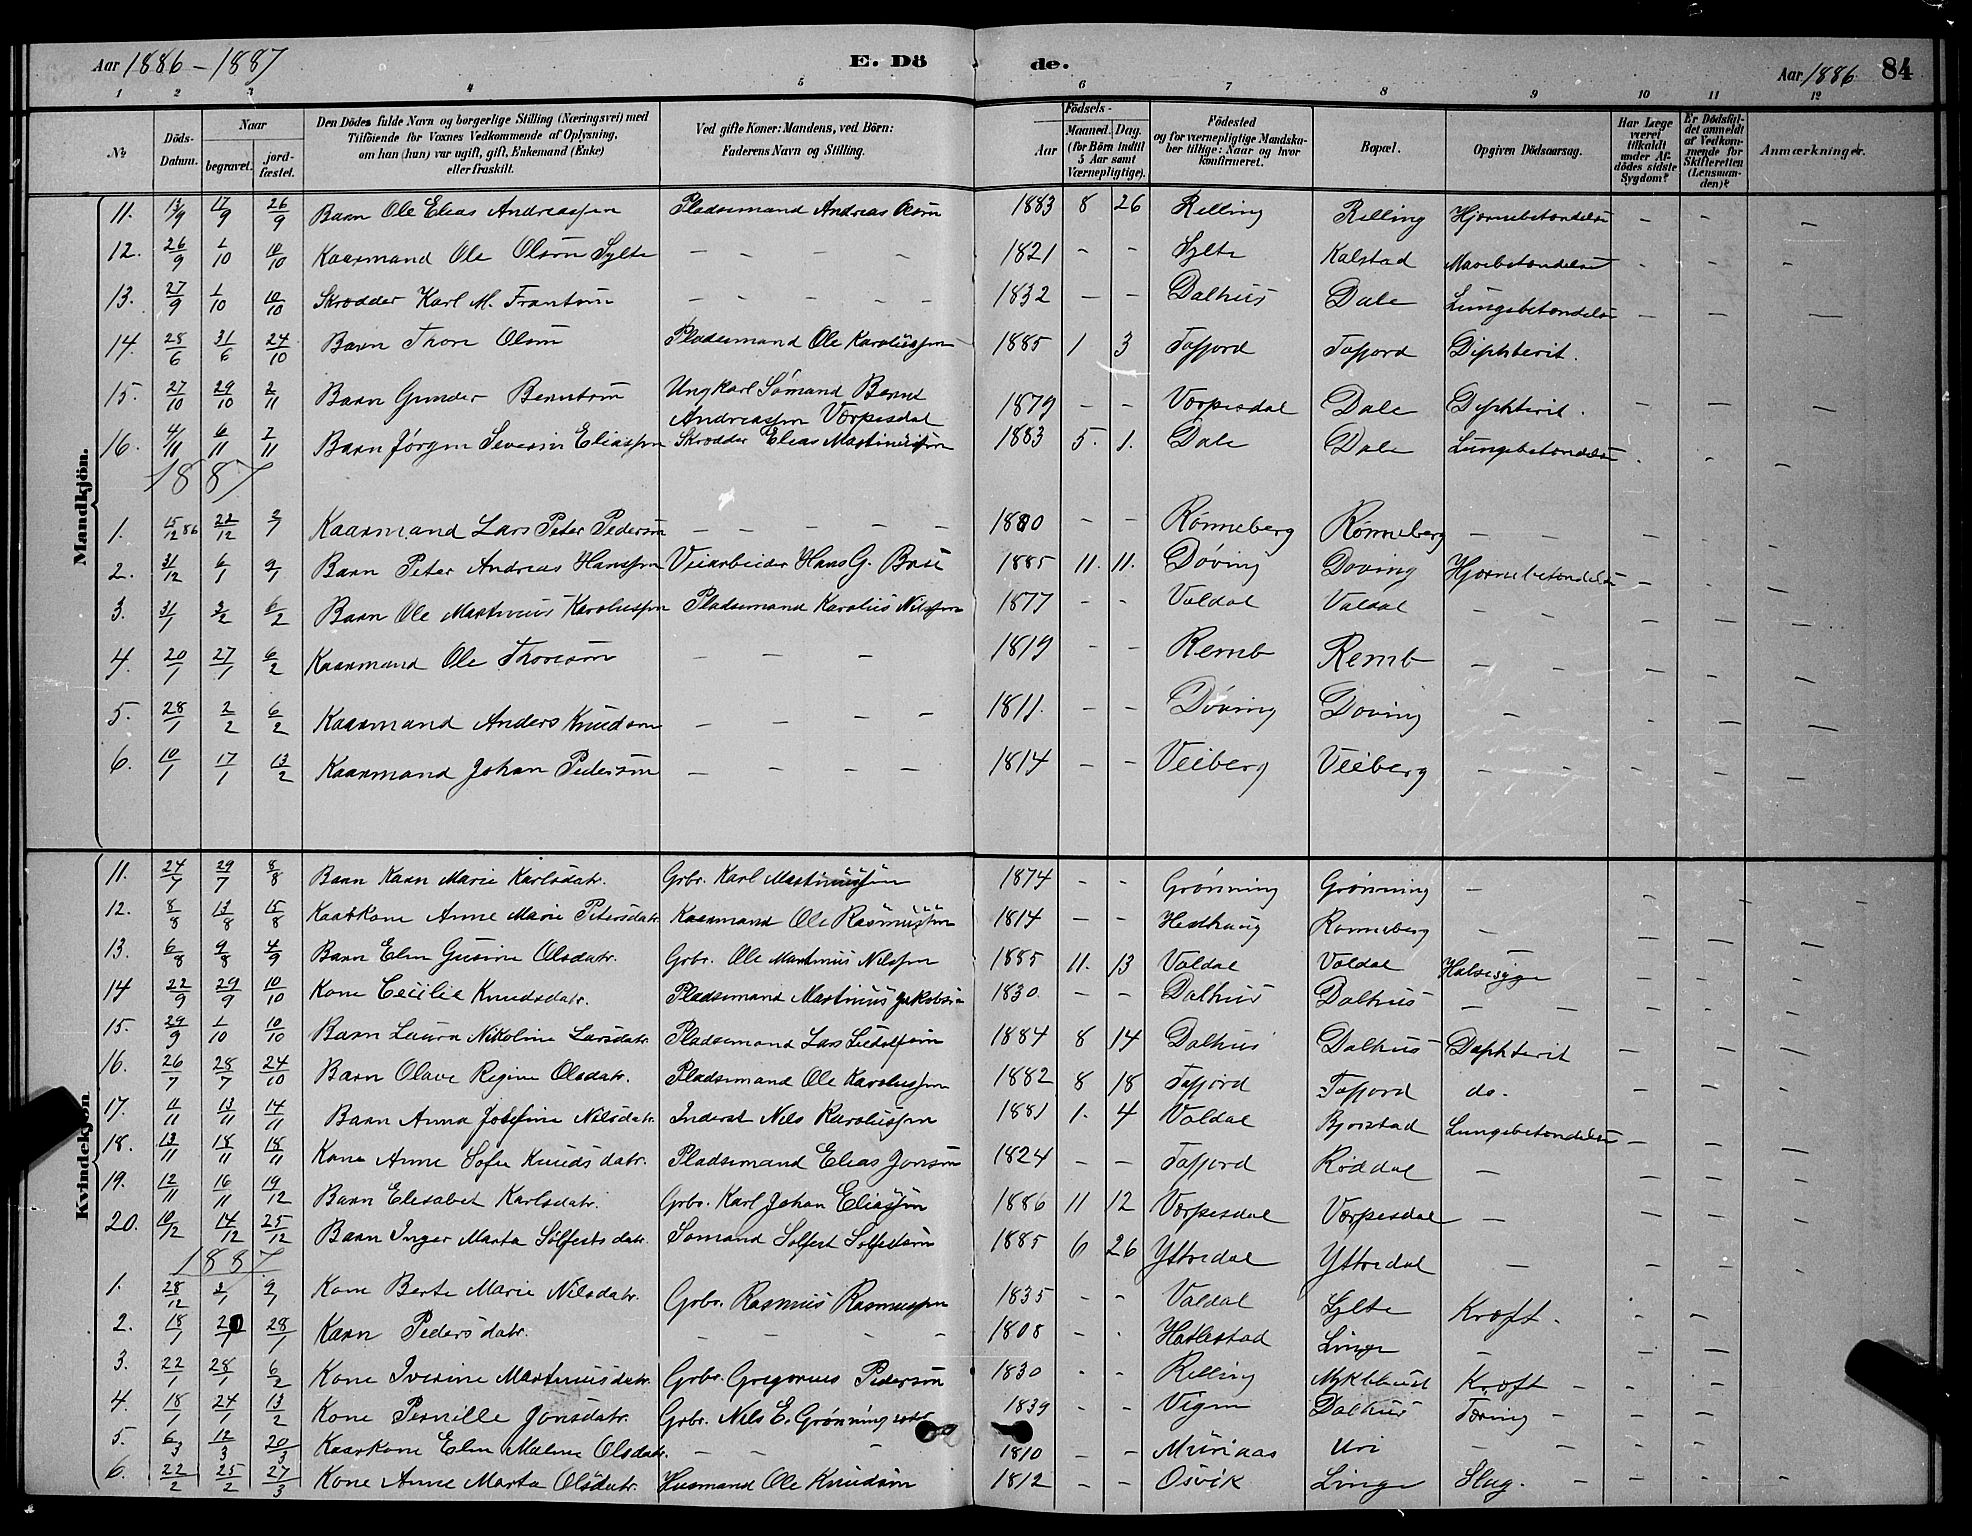 Aar 1886 - 1887
E. Dö
de.
Aar 1886
84
1 2 3 4 5 6 7 8 9 10 11 12
№
Döds-Datum.
Naar
begravet.
jord-fæstet.
Den Dödes fulde Navn og borgerlige Stilling (Næringsvei) med
Tilföiende for Voxnes Vedkommende af Oplysning,
om han (hun) var ugift, gift, Enkemand (Enke)
eller fraskilt.
Ved gifte Koner: Mandens, ved Börn:
Faderens Navn og Stilling.
Födsels-
Aar
Maaned. Dag.
(for Börn indtil
5 Aar samt
Værnepligtige).
Födested
og for værnepligtige Mandska-
ber tillige: Naar og hvor
konfirmeret.
Bopæl.
Opgiven Dödsaarsag.
Har Læge
været
tilkaldt
under Af-
dödes sidste
Sygdom?
Er Dödsfal-
det anmeldt
af Vedkom-
mende for
Skifteretten
(Lensman-
den)?
Anmærkninger.
Mandkjön.
11. 13/9 17/9 26/9 Barn Ole Elias Andreassen Pladsemand Andreas Olsen 1883 8 26 Relling Relling Hjernebetændelse - - -
12. 26/9 1/10 10/10 Kaarmand Ole Olsen Sylte - - - - 1821 - - Sylte Kalstad Mavebetændelse - - -
13. 27/9 1/10 10/10 Skrædder Karl M. Frantsen - - - - - 1832 - - Dalhus Dale Lungebetændelse - - -
14. 28/6 31/6 24/10 Barn Thore Olsen Pladsemand Ole Karolussen 1885 1 3 Tafjord Tafjord Diphterit. - - -
15. 27/10 29/10 2/11 Barn Gunder Berntsen Ungkarl Sömand Bernt
Andreassen Verpesdal 1879 - - Verpesdal Dale Diphterit. - - -
16. 4/11 6/11 2/11 Barn Jörgen Severin Eliassen Skrædder Elias Martinussen 1883 5. 1. Dale Dale Lungebetændelse - - -
1887
1. 15/12 86 22/12 2/1 Kaarmand Lars Peter Pedersen - - - - - 1880 - - Rønneberg Rønneberg - - - -
2. 31/12 6/1 9/1 Barn Peter Andreas Hanssen Veiarbeider Hans G. 1885 11. 11. Døving Døving Hjernebetændelse - - -
3. 31/1 3/2 6/2 Barn Ole Martinus Karolussen Pladsemand Karolus Nilssen 1877 - - Valdal Valdal - - - -
4. 20/1 27/1 6/2 Kaarmand Ole Thoresen - - - 1819 - - Remb Remb - - - -
5. 28/1 2/2 6/2 Kaarmand Anders Knudsen - - - - 1811. - - Døving Døving - - - -
6. 10/1 17/1 13/2 Kaarmand Johan Pedersen - - - - 1814 - - Veiberg Veiberg - - - -
Kvindekjön.
11. 24/7 29/7 8/8 Barn Karn Marie Karlsdatr. Grbr. Karl Martinussen 1874 - - Grønning Grønning - - - -
12. 8/8 13/8 15/8 Kaarkone Anne Marie Petersdatr. Kaarmand Ole Rasmussen 1814 - - Hesthaug Rønneberg - - - -
13. 6/8 9/8 4/9 Barn Elen Gusine Olsdatr. Grbr. Ole Martinus Nilssen 1885 11. 13 Valdal Valdal Halssyge - - -
14 22/9 29/9 10/10 Kone Cecilie Knudsdatr. Pladsemand Martinus Jakobsen 1830 - - Dalhus Dalhus - - - -
15. 29/9 1/10 10/10 Barn Laura Nikoline Larsdatr. Pladsemand Lars Ludolfsen 1884 8 14 Dalhus Dalhus Diphterit - - -
16. 26/7 28/7 24/10 Barn Olave Regine Olsdatr. Pladsemand Ole Karolussen 1882 8 18 Tafjord Tafjord do. - - -
17. 11/11 13/11 14/11 Barn Anna Josefine Nilsdatr. Inderst Nils Karolussen 1881 1. 4 Valdal Bjorstad Lungebetændelse - - -
18. 13/11 18/11 18/11 Kone Anne Sofie Knudsdatr. Pladsemand Elias Jonsen 1824 - - Tafjord Røddal - - - -
19. 12/11 16/11 19/12 Barn Elisabet Karlsdatr. Grbr. Karl Johan Eliassen 1886 11 12 Verpesdal Verpesdal - - - -
20. 10/12 14/12 25/12 Barn Inger Marta Sølfestsdatr. Sømand Solfest Solfestsen 1885 6 26 Yttredal Yttredal - - - -
1887
1. 28/12 2/1 9/1 Kone Berte Marie Nilsdatr. Grbr. Rasmus Rasmussen 1835 - - Valdal Sylte Kræft. - - -
2. 18/1 20/1 28/1 Karn Pedersdatr. - - - - 1808 - - Hatlestad Linge - - - -
3. 22/1 28/1 6/2 Kone Iverine Martinusdatr. Grbr. Gregorius Pedersen 1830 - - Relling Myklebust Kræft - - - -
4. 18/1 24/1 13/2 Kone Pernille Jonsdatr. Grbr. Nils E. Grønningsæter 1839 - - Vigen Dalhus Tæring - - - -
5. 6/3 12/3 20/3 Kaarkone Elen Malene Olsdatr. - - - 1810 - - Muriaas Uri - - - -
6. 22/2 25/2 27/3 Kone Anne Marta Olsdatr. Husmand Ole Knudsen 1812 - - Osvik Linge Slag. - - - -